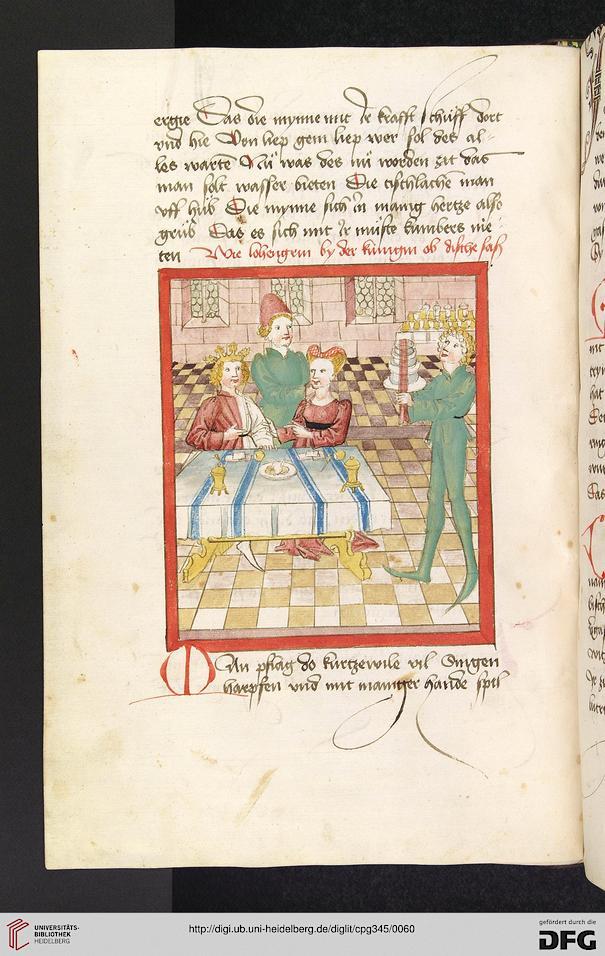 ergie Das die mynne mit Ir krafft schüff dort
vnd hie Von liep gem liep wer sol des al-
les warte Nü was des nü worden zit das
man solt wasser bieten Die tischlachen man
vff hüb Die mynne sich In manig hertze also
grüb Das es sich mit Ir müste kümbers nie
ten Wie lohengrin by der künigin ob dische sass
MAn pflag do kürtzewile vil Singen
harpfen vnd mit maniger hande spil
UNIVERSITÄTS-
BIBLIOTHEK
HEIDELBERG
http://digi.ub.uni-heidelberg.de/diglit/cpg345/0060
gefördert durch die
DFG